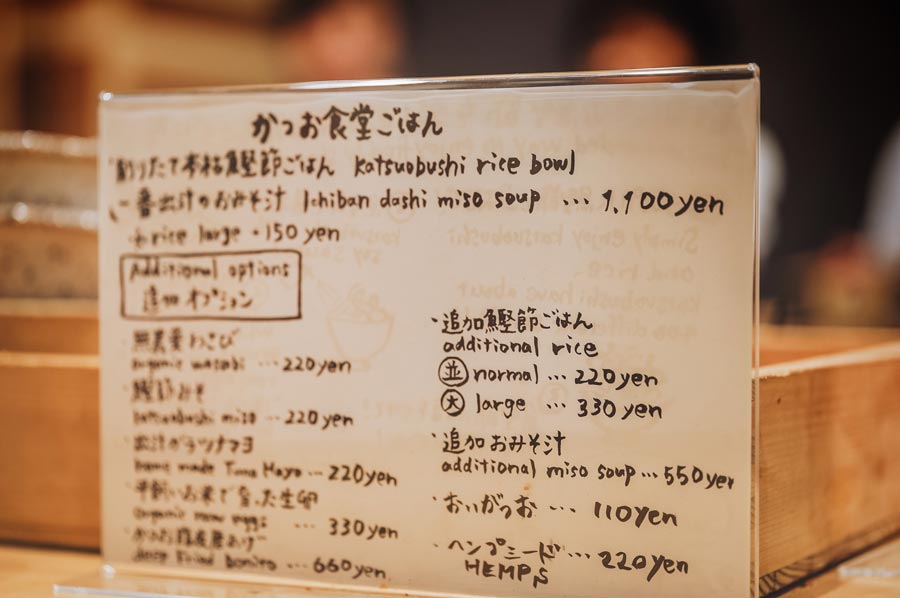 かつお食堂ごはん
削りたて本枯鰹節ごはん katsuobushi rice bowl
一番出汁のおみそ汁 Ichiban dashi miso soup … 1,100yen
rice large ・150 yen
Additional options
追加オプション
・無農薬わさび
organic wasabi … 220yen
・鰹節みそ
katsuobushi miso … 220yen
・出汁がらツナマヨ
home made Tuna Mayo … 220yen
・平飼いお米で育った生卵
organic raw eggs … 330yen
deep fried bonito … 660yen
・追加鰹節ごはん
additional rice
並 normal … 220yen
大 large … 330yen
・追加おみそ汁
additional miso soup … 550yen
・おいがつお … 110yen
・ヘンプシード … 220yen
HEMP,S